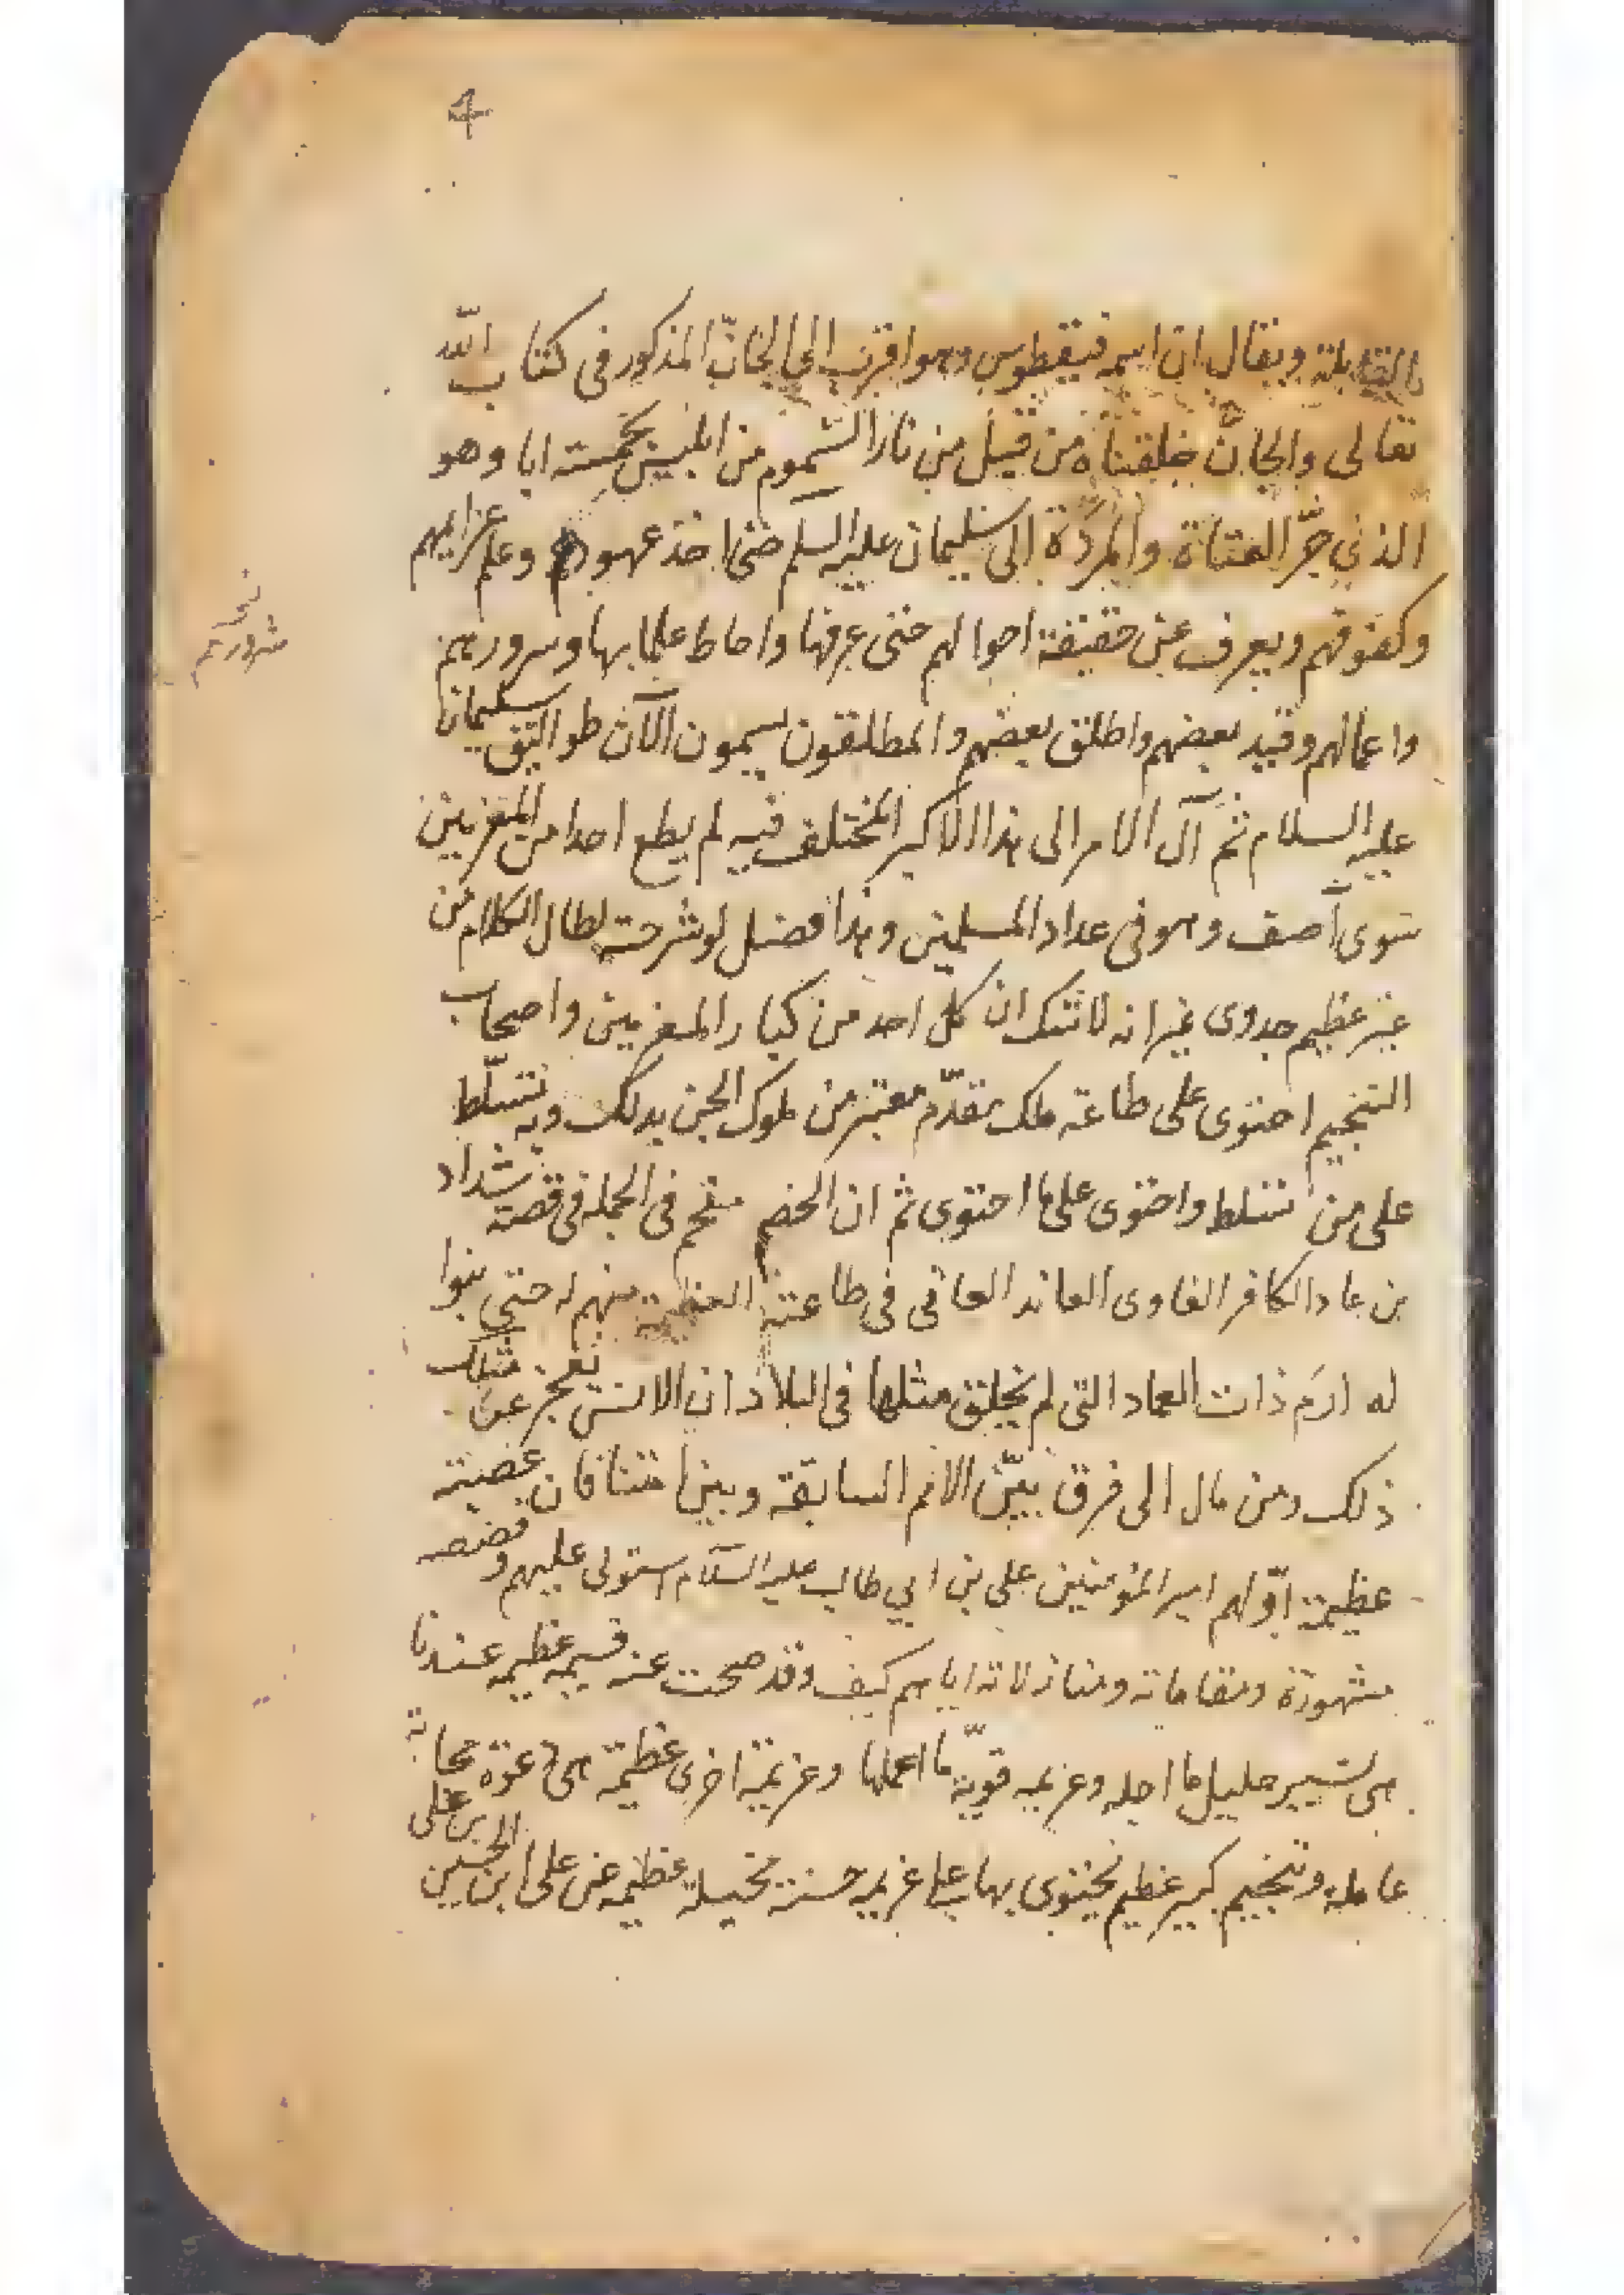 4
القابلة ويقال ان اسمه فيقطوس وهو اقرب الى الجانّ المذكور فى كتاب الله
تعالى والجانّ خلقناه من قبل من نار السّموم من ابليس بخمسة ابا وهو
الذى جرّ العتاة والمردة الى سليمان عليه السلم حتى اخذ عهودهم وعلم عزايمهم
وكفوفهم ويعرف عن حقيقة احوالهم حتى عرفها واحاط علما بها وسرورهم
شرورهم
واعمالهم وقيد بعضهم واطلق بعضهم والمطلقون يسمون الآن طواليق سليمان
عليه السلام ثم آل الامر الى هذا الاكبر المختلف فيه لم يطع احدا من المعزمين
سوى آصف وهو فى عداد المسلمين وهذا فصل لو شرحته لطال الكلام من
غير عظيم جدوى غير انه لا شك ان كل احد من كبار المعزمين واصحاب
التنجيم احتوى على طاعة ملك مقدّم معتبر من ملوك الجن بذلك وبه تسلّط
على من تسلط واحتوى على ما احتوى ثم ان الخصم مفحم فى الجملة فى قصة شداد
بن عاد الكافر الغاوى العاند العاتى فى طاعة العظيمة منهم له حتى بنوا
له ارم ذات العماد التى لم يخلق مثلها فى البلاد ان الانس تعجز عن مثل
ذلك ومن مال الى فرق بيّن الامم السابقة وبيننا متنافان عصبته
عظيمة اوّلهم امير المؤمنين على بن ابي طالب عليه السلام استولى عليهم وقصته
مشهورة ومقاماته ومنازلاته اياهم كيف وقد صحت عنه قسيمه عظيمه عندنا
هى تسيير جليل ما اجله وعزيمه قويّة ما اعملها وعزيمة اخرى عظيمة هى دعوة مجابة
عاملة وتنجيم كبير عظيم نحتوى بها على عزيمه حسنة عظيمه عن على ابن الحسين
بن على